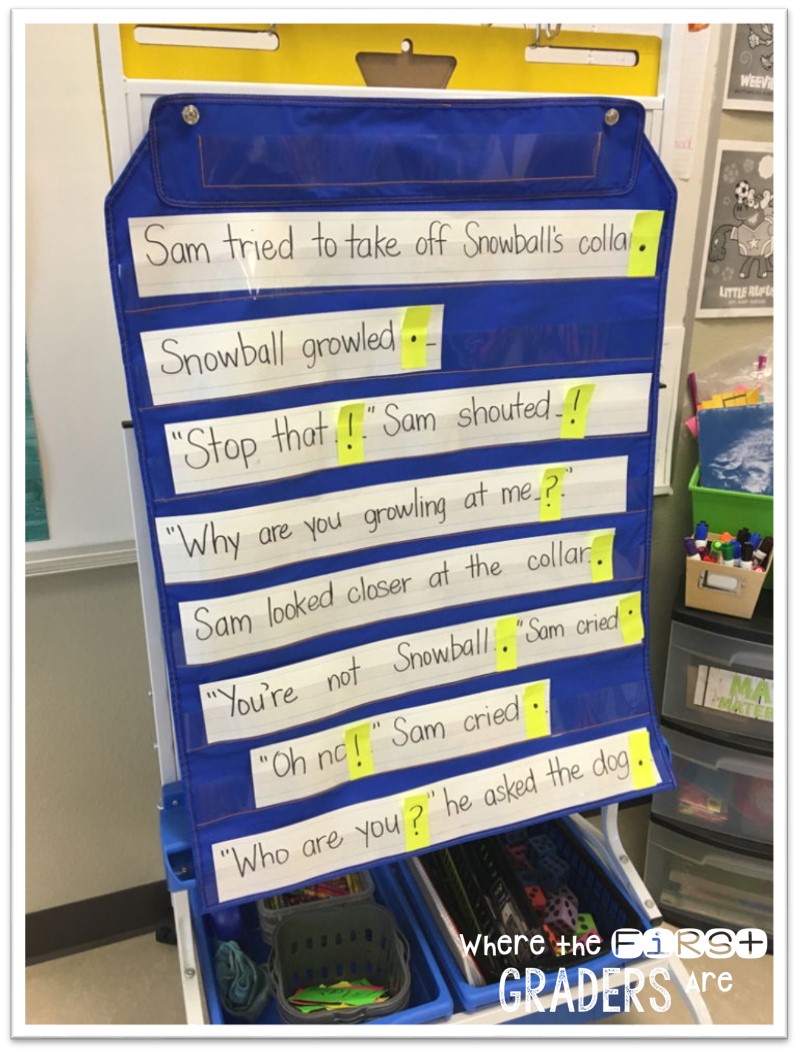 WEEVI
LITTLE RUFU
Sam tried to take off Snowball's colla.
Snowball growled.
"Stop that!" Sam shouted!
"Why are you growling at me?"
Sam looked closer at the collar.
"You're not Snowball." Sam cried.
"Oh no!" Sam cried.
"Who are you?" he asked the dog.
MA
MATER
Where the FiRSt
GRADERS Are